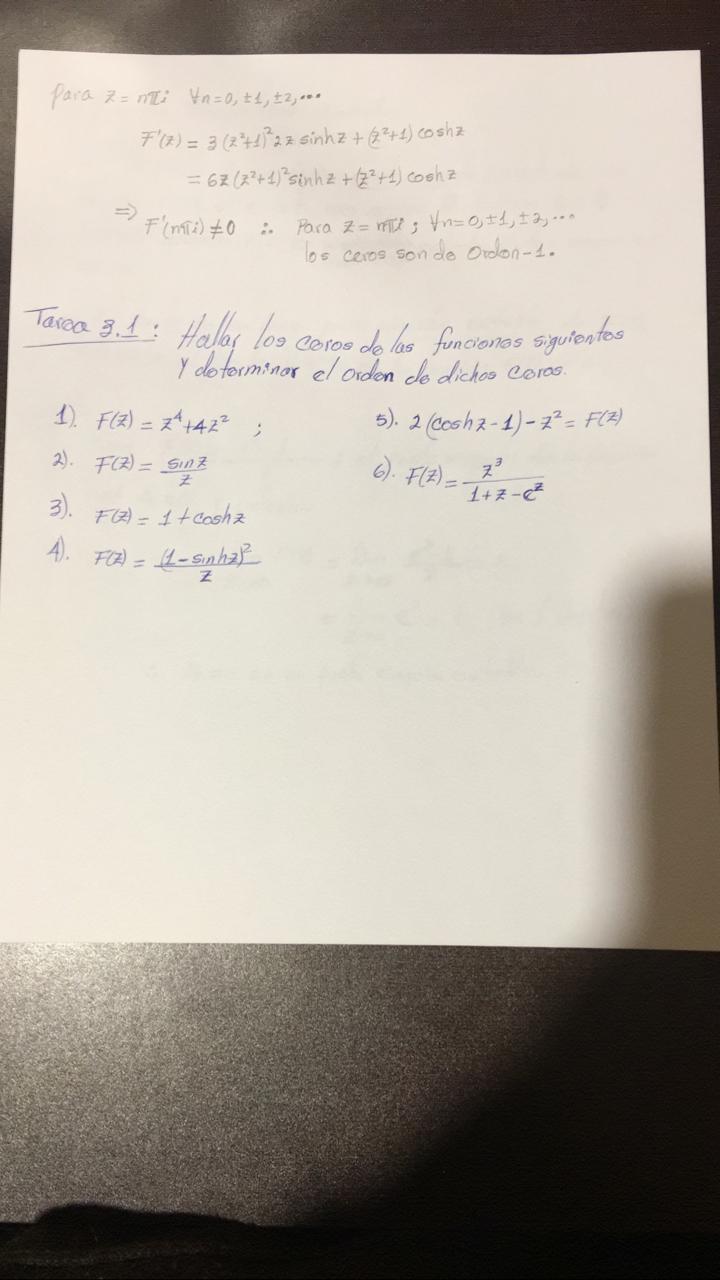 Para z = nπi ∀n=0, ±1, ±2, ...
F'(z) = 3(z²+1)²2z sinhz + (z²+1) coshz
= 6z(z²+1)²sinhz + (z²+1) coshz
⇒ F'(nπi) ≠ 0 ∴ Para z = nπi ; ∀n=0, ±1, ±2, ...
los ceros son de Orden-1.
Tarea 3.1 : Hallar los ceros de las funciones siguientes
Y determinar el orden de dichos ceros.
1). F(z) = z⁴+4z² ;
2). F(z) = sinz/z
3). F(z) = 1 + coshz
4). F(z) = (1-sinhz)²/z
5). 2(coshz-1) - z² = F(z)
6). F(z) = z³/(1+z-e^z)